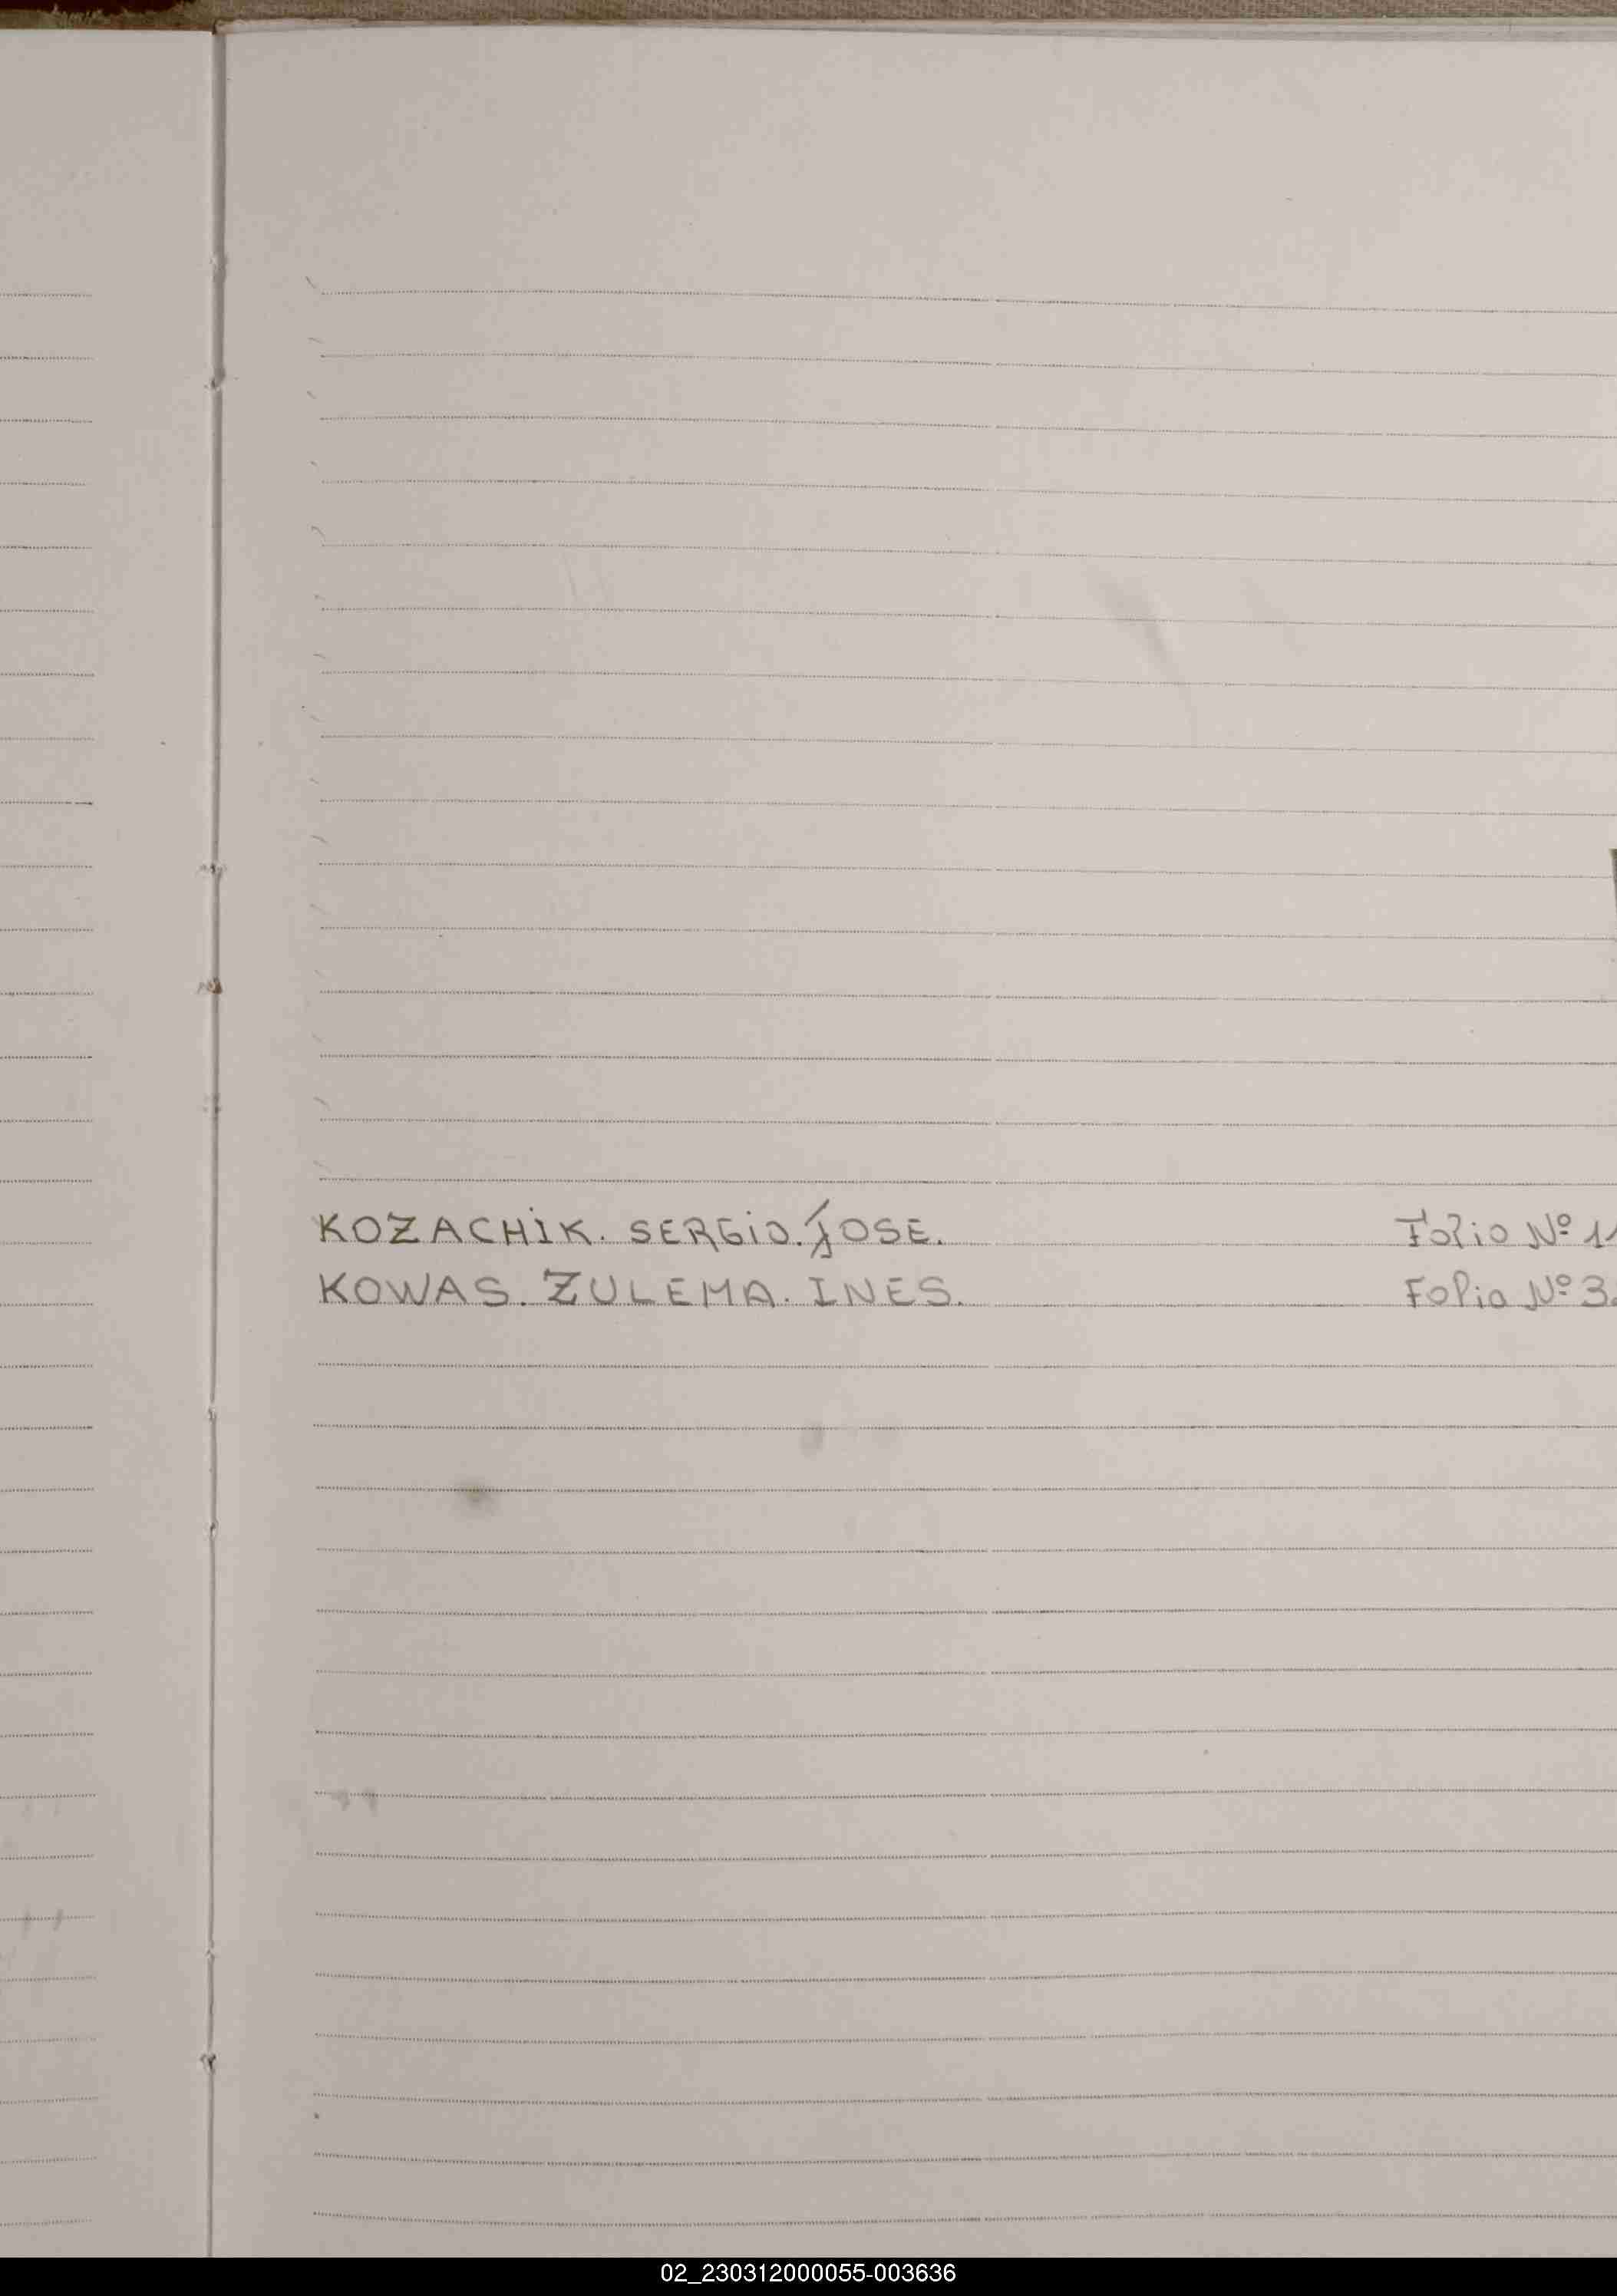 KOZACHIK. SERGIO. JOSE. Folio Nº
KOWAS. ZULEMA. INES. Folio Nº
02_230312000055-003636